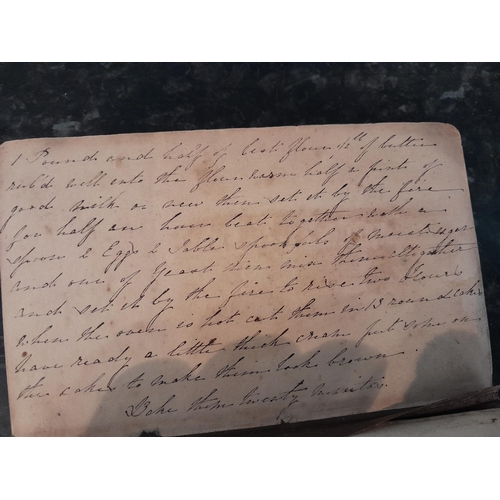 1 Pound and half of best flour 1/2 lb of butter
rub'd well into the flour warm half a pint of
good milk or new then set it by the fire
for half an hour beat together with a
spoon 2 Eggs 2 Table spoonfuls of moist sugar
and one of Yeast then mix them alltogether
and set it by the fire to rise two hours
when the oven is hot cut them in 13 round cakes
have ready a little thick cream put some on
the cakes to make them look brown
Bake them twenty minits